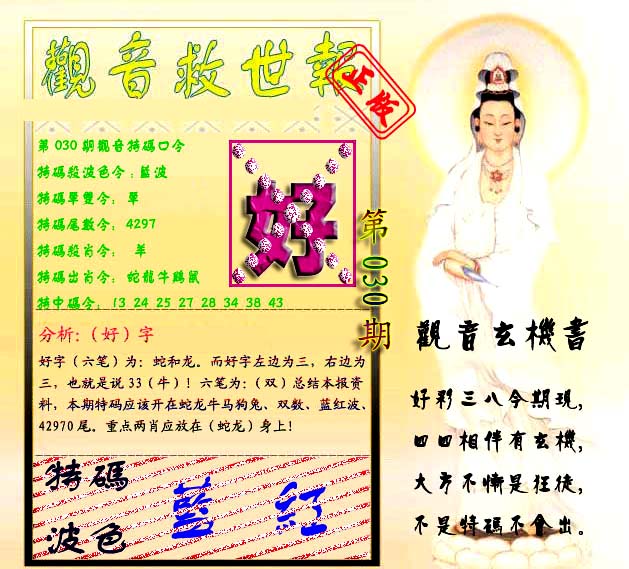 觀音救世報
正版
第 030 期觀音特碼口令
特碼殺波色令：藍波
特碼單雙令： 單
特碼尾數令： 4297
特碼殺肖令： 羊
特碼出肖令： 蛇龍牛雞鼠
特中碼令： 13 24 25 27 28 34 38 43
好
第 030 期
分析：（好）字
好字（六笔）为：蛇和龙。而好字左边为三，右边为
三，也就是说 33（牛）！六笔为：（双）总结本报资
料，本期特码应该开在蛇龙牛马狗兔、双数、蓝红波、
42970 尾。重点两肖应放在（蛇龙）身上！
特碼
波色
藍 紅
觀音玄機書
好彩三八今期現，
四四相伴有玄機，
大方不慚是狂徒，
不是特碼不會出。